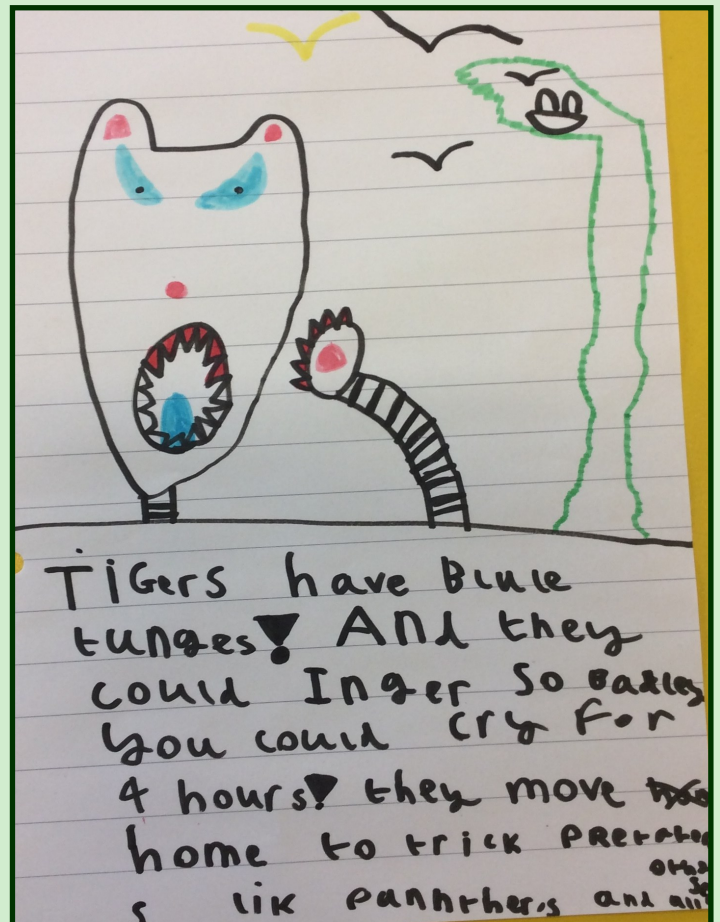 TiGers have Blule
tunges! And they
could Inger So badley
you could cry for
4 hours! they move
home to trick Prerator
s lik pannthers and all